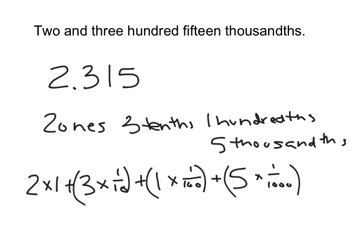 Two and three hundred fifteen thousandths.
2.315
2 ones 3 tenths 1 hundredths
5 thousandths
2×1+(3×1/10)+(1×1/100)+(5×1/1000)